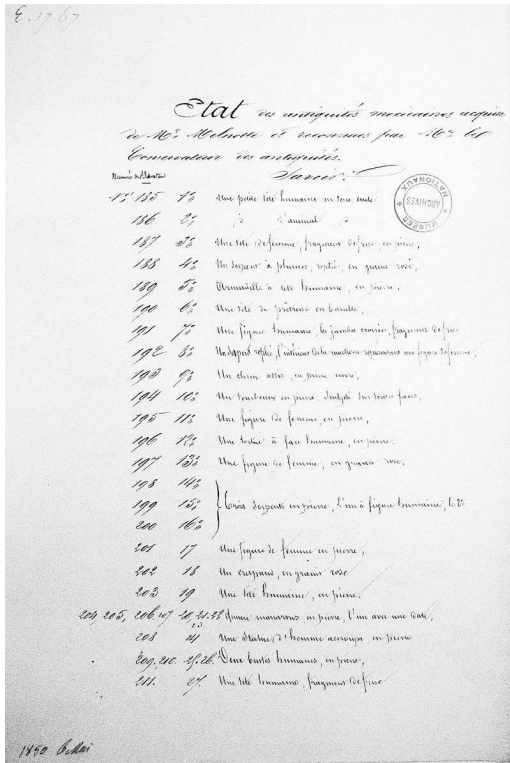 E. 1767
Etat des antiquités mexicaines acquises
de Mr. Melnotte et reconnues par Mr. le
Conservateur des antiquités.
Savoir:
Numéros
MUSÉES NATIONAUX ARCHIVES
Nos 185 1o Une petite tête humaine en terre cuite
186 2o d'animal
187 3o Une tête de femme, fragment de frise, en pierre,
188 4o Un serpent à plumes, replié, en granit rosé,
189 5o à tête humaine, en pierre,
190 6o Une tête de prêtresse en basalte,
191 7o Une figure humaine, les jambes croisées, fragment de frise
192 8o Un serpent replié, l'intérieur de la machoire représentant une figure de femme,
193 9o Un chien assis, en pierre noire,
194 10o Un en pierre sculpté sur toutes faces,
195 11o Une figure de femme, en pierre,
196 12o Une tortue à face humaine, en pierre,
197 13o Une figure de femme, en granit rose,
198 14o
199 15o Trois serpents en pierre, l'un à figure humaine, le 2e
200 16o
201 17 Une figure de femme en pierre,
202 18 Un en granit rose
203 19 Une tête humaine, en pierre,
204 205, 206. 207 20, 21. 22 23. Quatre en pierre, l'un avec une date,
208 24 Une statue d'homme accroupi, en pierre
209. 210. 25. 26. Deux bustes humains, en pierre,
211. 27. Une tête humaine, fragment de frise
1850 6 Mai